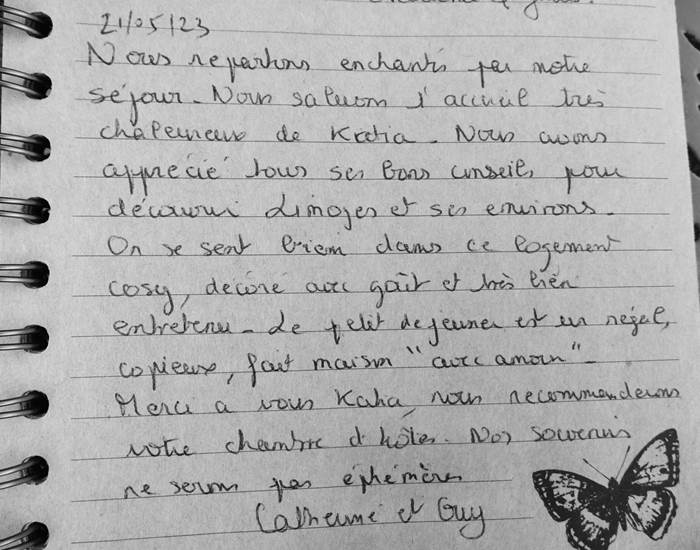 21/05/23
Nous repartons enchantés par notre
séjour. Nous saluons l'accueil très
chaleureux de Katia. Nous avons
apprécié tous ses bons conseils pour
découvrir Limoges et ses environs.
On se sent bien dans ce logement
cosy, décoré avec goût et très bien
entretenu. Le petit dejeuner est un régal,
copieux, fait maison "avec amour".
Merci a vous Katia, nous recommanderons
votre chambre d'hôtes. Nos souvenirs
ne seront pas éphémères
Catherine et Guy